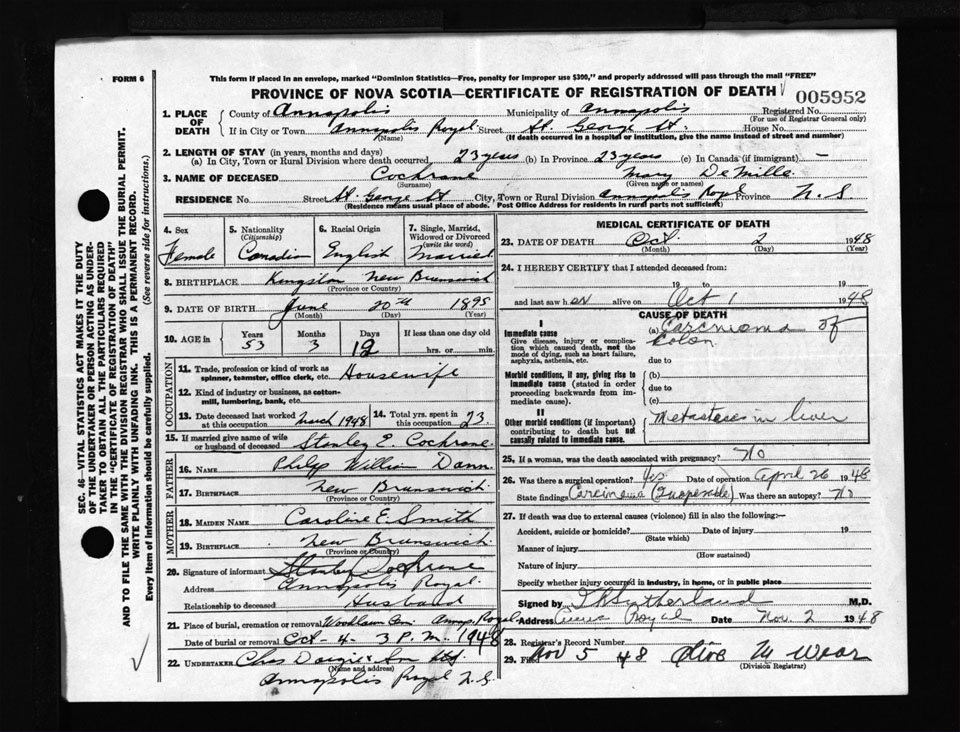 FORM 6
This form if placed in an envelope, marked "Dominion Statistics—Free, penalty for improper use $300," and properly addressed will pass through the mail "FREE"
PROVINCE OF NOVA SCOTIA—CERTIFICATE OF REGISTRATION OF DEATH 005952
1. PLACE OF DEATH
County of Annapolis Municipality of Annapolis Registered No.
(For use of Registrar General only)
If in City or Town Annapolis Royal Street St. George St. House No.
(Name) (If death occurred in a hospital or institution, give the name instead of street and number)
2. LENGTH OF STAY (in years, months and days)
(a) In City, Town or Rural Division where death occurred, 23 years (b) In Province 23 years (c) In Canada (if immigrant) —
3. NAME OF DECEASED Cochrane Mary DeMille
(Surname) (Given name or names)
RESIDENCE No. Street St George St City, Town or Rural Division Annapolis Royal Province N. S
(Residence means usual place of abode. Post Office Address for residents in rural parts not sufficient)
4. Sex Female
5. Nationality (Citizenship) Canadian
6. Racial Origin English
7. Single, Married, Widowed or Divorced (write the word) Married
8. BIRTHPLACE Kingston New Brunswick
(Province or Country)
9. DATE OF BIRTH June 20th 1895
(Month) (Day) (Year)
10. AGE in Years Months Days If less than one day old
53 3 12 hrs. or min.
OCCUPATION
11. Trade, profession or kind of work as spinner, teamster, office clerk, etc. Housewife
12. Kind of industry or business, as cotton-mill, lumbering, bank, etc.
13. Date deceased last worked at this occupation March 1948
14. Total yrs. spent in this occupation 23
15. If married give name of wife or husband of deceased Stanley E. Cochrane
FATHER
16. NAME Philip William Dann
17. BIRTHPLACE New Brunswick
(Province or Country)
MOTHER
18. MAIDEN NAME Caroline E. Smith
19. BIRTHPLACE New Brunswick
(Province or Country)
20. Signature of informant Stanley Cochrane
Address Annapolis Royal
Relationship to deceased Husband
21. Place of burial, cremation or removal Woodlawn Cem. Annap. Royal
Date of burial or removal Oct - 4 - 3 P.M. 1948
22. UNDERTAKER Chas Dargie & Son Ltd
(Name and address)
Annapolis Royal N.S.
MEDICAL CERTIFICATE OF DEATH
23. DATE OF DEATH Oct. 2 1948
(Month) (Day) (Year)
24. I HEREBY CERTIFY that I attended deceased from:
19 to 19
and last saw her alive on Oct 1 1948
CAUSE OF DEATH
I
Immediate cause
Give disease, injury or complication which caused death, not the mode of dying, such as heart failure, asphyxia, asthenia, etc.
(a) Carcinoma of Colon
due to
Morbid conditions, if any, giving rise to immediate cause (stated in order proceeding backwards from immediate cause).
(b)
due to
(c)
II
Other morbid conditions (if important) contributing to death but not causally related to immediate cause.
Metastases in liver
25. If a woman, was the death associated with pregnancy? No
26. Was there a surgical operation? Yes Date of operation April 26 1948
State findings Carcinoma (Inoperable) Was there an autopsy? No
27. If death was due to external causes (violence) fill in also the following:—
Accident, suicide or homicide? Date of injury 19
(State which)
Manner of injury
(How sustained)
Nature of injury
Specify whether injury occurred in industry, in home, or in public place
Signed by Sutherland M.D.
Address Royal Date Nov. 2 1948
28. Registrar's Record Number
29. Filed Nov 5 48 Olive M Wear
(Division Registrar)
SEC. 46—VITAL STATISTICS ACT MAKES IT THE DUTY
OF THE UNDERTAKER OR PERSON ACTING AS UNDERTAKER
TO OBTAIN ALL THE PARTICULARS REQUIRED
IN THE "CERTIFICATE OF REGISTRATION OF DEATH"
AND TO FILE THE SAME WITH THE DIVISION REGISTRAR WHO SHALL ISSUE THE BURIAL PERMIT.
WRITE PLAINLY WITH UNFADING INK. THIS IS A PERMANENT RECORD.
Every item of information should be carefully supplied. (See reverse side for instructions.)